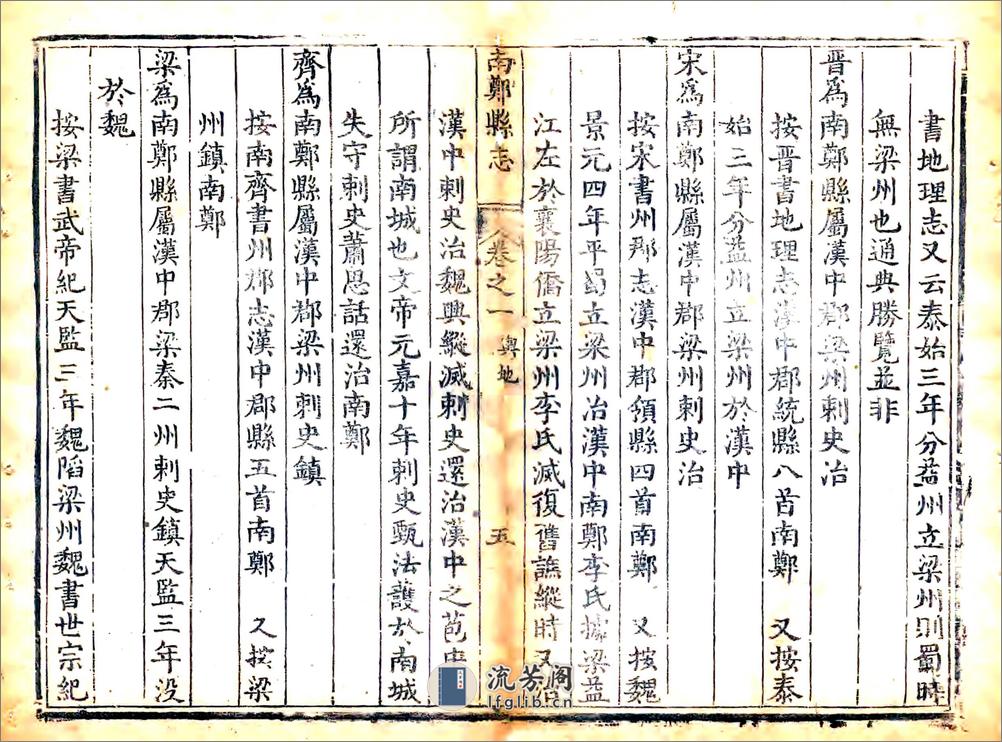 書地理志又云泰始三年分益州立梁州則蜀時
無梁州也通典勝覽並非
晋為南鄭縣屬漢中郡梁州刺史治
按晉書地理志漢中郡統縣八首南鄭 又按泰
始三年分益州立梁州於漢中
宋為南鄭縣屬漢中郡梁州刺史治
按宋書州郡志漢中郡領縣四首南鄭 又按魏
景元四年平蜀立梁州治漢中南鄭李氏據梁益
江左於襄陽僑立梁州李氏滅復舊譙縱時又
南鄭縣志 卷之一 輿地 五
漢中刺史治魏興縱滅刺史還治漢中之苞中
所謂南城也文帝元嘉十年刺史甄法護於南城
失守刺史蕭思話還治南鄭
齊為南鄭縣屬漢中郡梁州刺史鎮
按南齊書州郡志漢中郡縣五首南鄭 又按梁
州鎮南鄭
梁為南鄭縣屬漢中郡梁秦二州刺史鎮天監三年没
於魏
按梁書武帝紀天監三年魏陷梁州魏書世宗紀
流芳阁
lfglib.cn